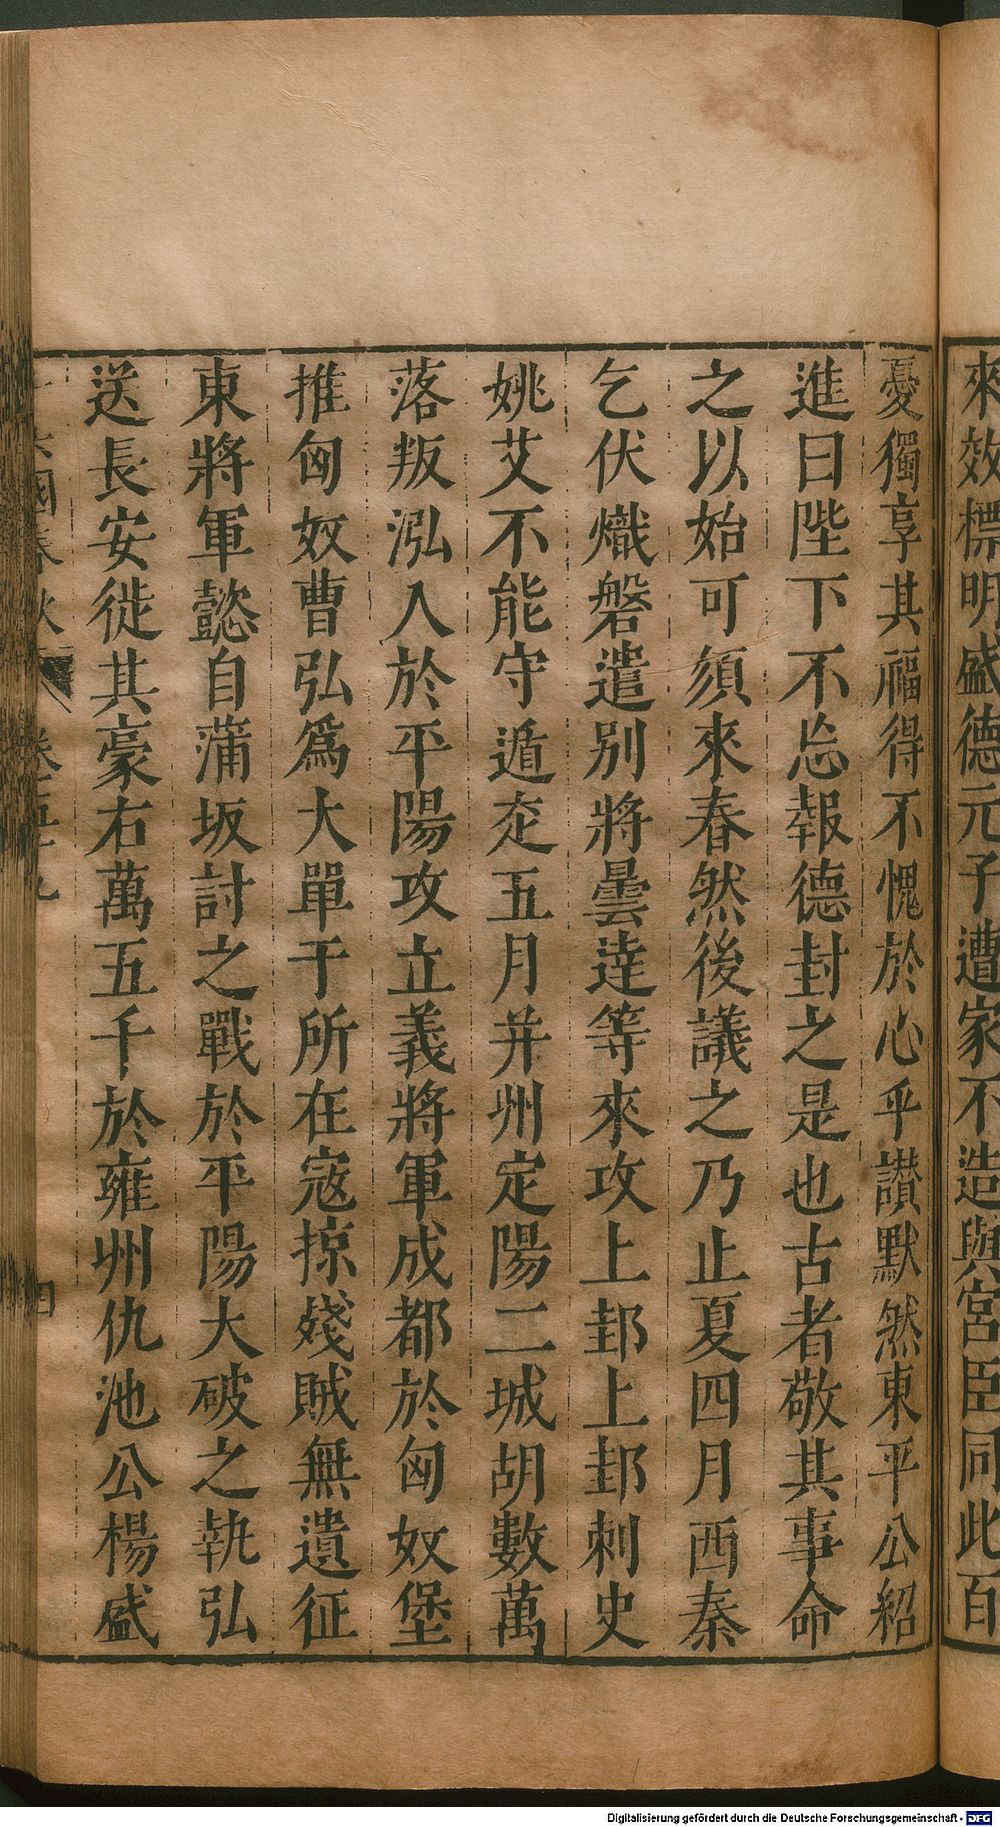 來效標明盛德元子遭家不造與宮臣同此百
憂獨享其福得不愧於心乎讃默然東平公紹
進曰陛下不忘報德封之是也古者敬其事命
之以始可須來春然後議之乃止夏四月西秦
乞伏熾磐遣別將曇達等來攻上邽上邽刺史
姚艾不能守遁走五月并州定陽二城胡數萬
落叛泓入於平陽攻立義將軍成都於匈奴堡
推匈奴曹弘爲大單于所在寇掠殘賊無遺征
東將軍懿自蒲坂討之戰於平陽大破之執弘
送長安徙其豪右萬五千於雍州仇池公楊盛
六國春秋 卷五十九 四
Digitalisierung gefördert durch die Deutsche Forschungsgemeinschaft - DFG